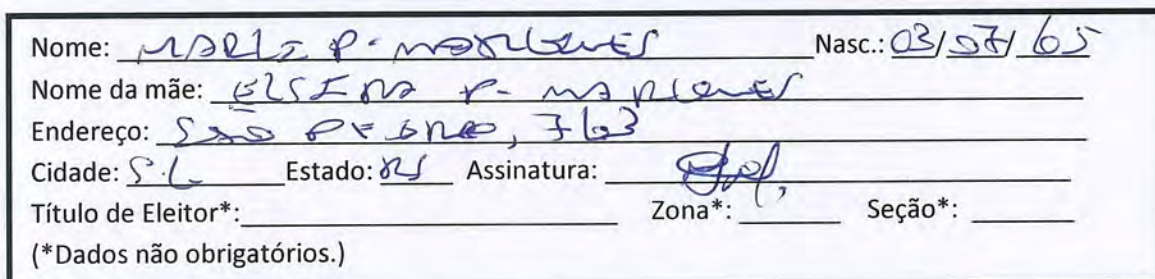 Nome: MARIA P. MARQUES Nasc.: 03/07/65
Nome da mãe: ELSIRA P. MARQUES
Endereço: SÃO PEDRO, 763
Cidade: S.L Estado: RS Assinatura:
Título de Eleitor*: Zona*: Seção*:
(*Dados não obrigatórios.)